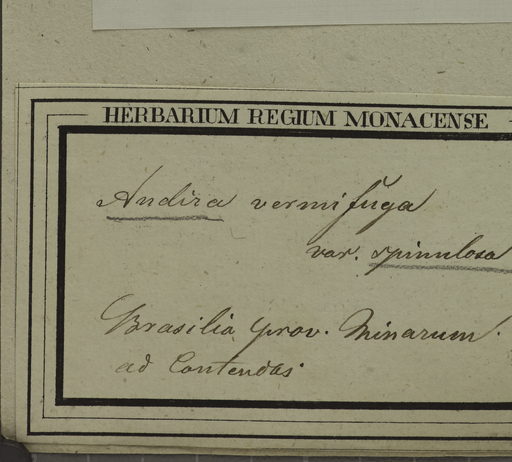 HERBARIUM REGIUM MONACENSE
Andira vermifuga
var. spinulosa
Brasilia prov. Minarum.
ad Contendas.